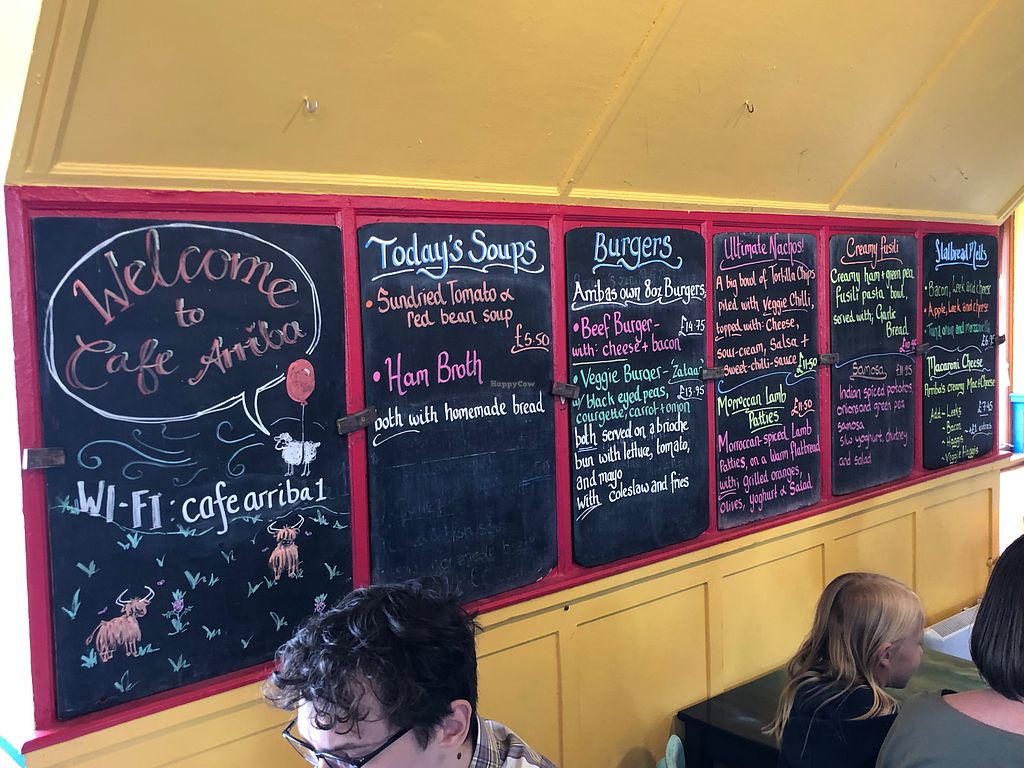 Welcome
to
Cafe Arriba
WI-FI: cafe arriba 1
Today's Soups
• Sundried Tomato &
red bean soup
£5.50
• Ham Broth
both with homemade bread
HappyCow
Burgers
Arribas own 8oz Burgers,
• Beef Burger - £14.75
with: cheese + bacon
• Veggie Burger - Zataar
w/ black eyed peas, £13.95
courgette, carrot + onion
both served on a brioche
bun with lettuce, tomato,
and mayo
With coleslaw and fries
Ultimate Nachos!
A big bowl of Tortilla Chips
piled with Veggie Chilli,
topped with: Cheese,
sour-cream, Salsa +
Sweet-chilli-sauce £11.50
Morrocan Lamb
Patties £11.50
Moroccan spiced Lamb
Patties, on a warm flatbread
with; grilled oranges,
olives, yoghurt & Salad
Creamy fusili
Creamy ham + green pea
fusili pasta bowl,
served with; Garlic
Bread.
Samosa £11.95
Indian spiced potatoes,
onions and green pea
samosa
S/w yoghurt, chutney
and salad
Flatbread Melts
• Bacon, Leek and cheese
• Apple, Leek and cheese
• Tuna, onion and mozzarella
Macaroni Cheese
Arriba's creamy Mac + Cheese
£7.95
Add - Leeks
- Bacon
- Haggis
- Veggie Haggis